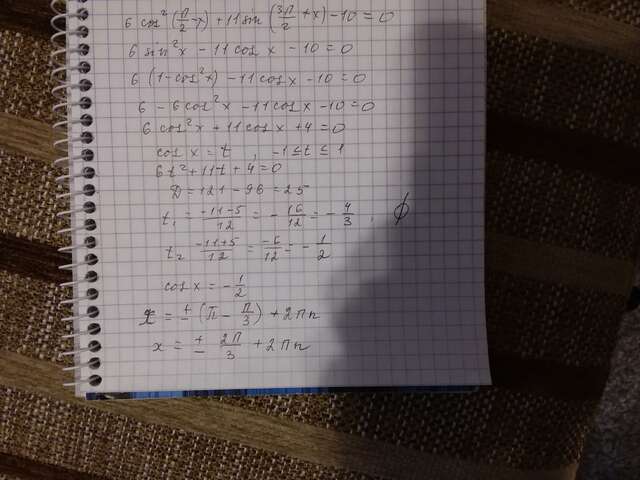 6 cos² (π/2 - x) + 11 sin (3π/2 + x) - 10 = 0
6 sin² x - 11 cos x - 10 = 0
6 (1 - cos² x) - 11 cos x - 10 = 0
6 - 6 cos² x - 11 cos x - 10 = 0
6 cos² x + 11 cos x + 4 = 0
cos x = t, -1 ≤ t ≤ 1
6t² + 11t + 4 = 0
D = 121 - 96 = 25
t₁ = -11-5/12 = -16/12 = -4/3, ∅
t₂ = -11+5/12 = -6/12 = -1/2
cos x = -1/2
x = ± (π - π/3) + 2πn
x = ± 2π/3 + 2πn